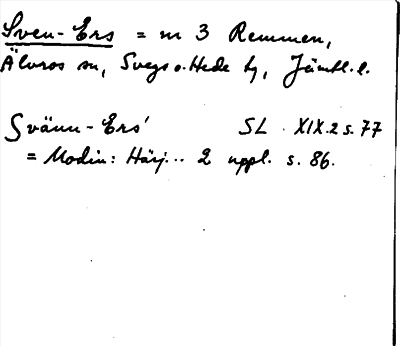 Sven-Ers = m 3 Remmen,
Älvros sn, Svegs o. Hede tg, Jämtl. l.
Svänn-Ers' SL XIX.2 s. 77
= Modin: Härj... 2 uppl. s. 86.